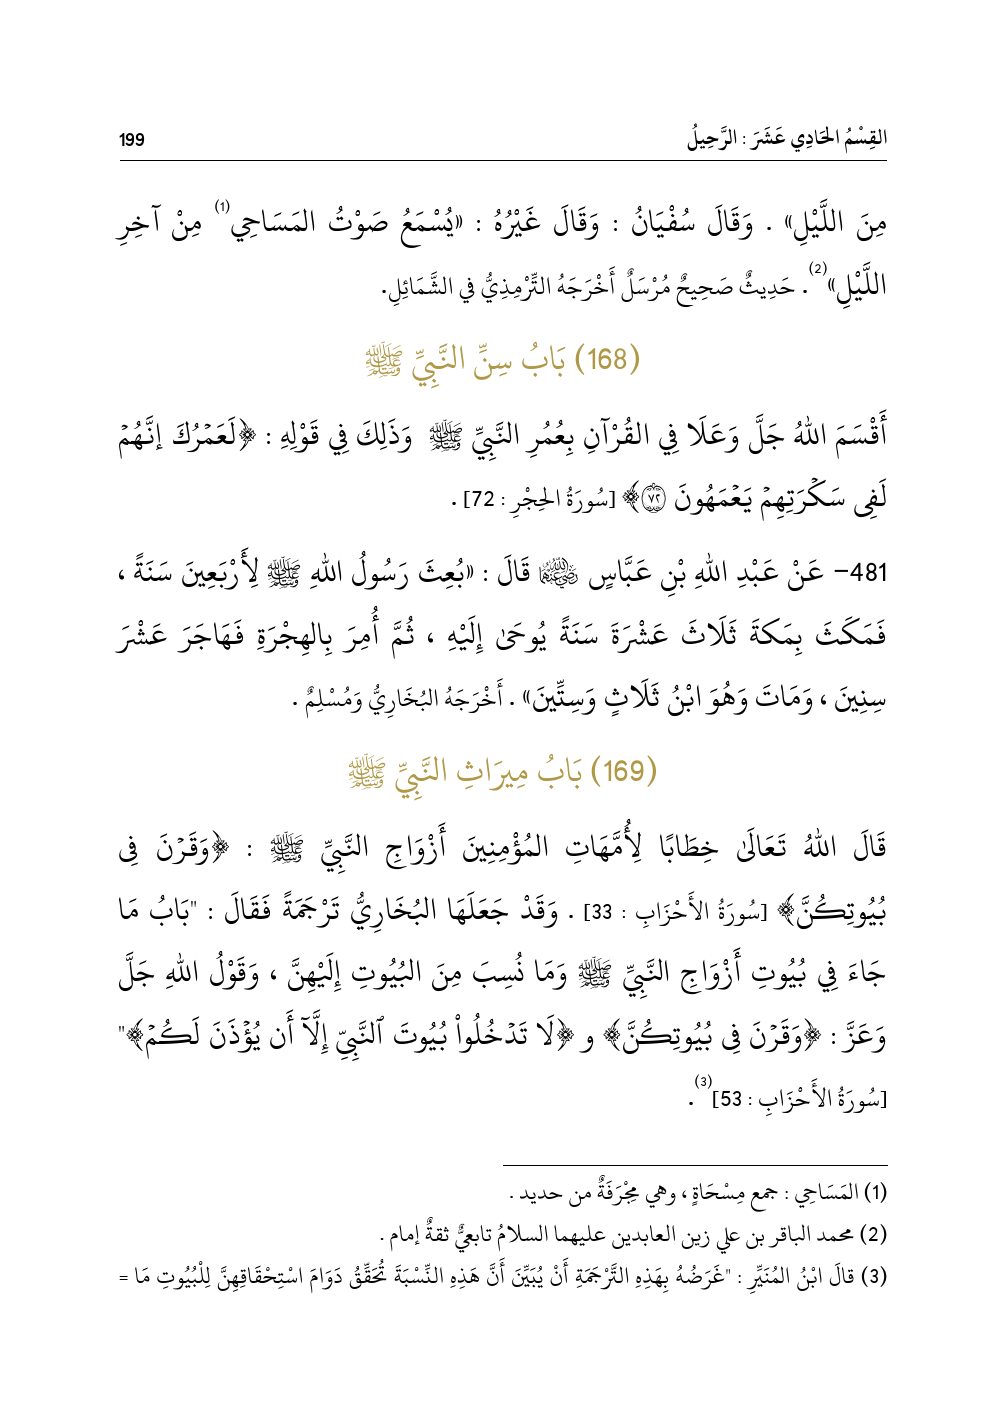 القِسْمُ الحَادِي عَشَرَ : الرَّحِيلُ 199
مِنَ اللَّيْلِ» . وَقَالَ سُفْيَانُ : وَقَالَ غَيْرُهُ : «يُسْمَعُ صَوْتُ المَسَاحِي(1) مِنْ آخِرِ
اللَّيْلِ»(2). حَدِيثٌ صَحِيحٌ مُرْسَلٌ أَخْرَجَهُ التِّرْمِذِيُّ في الشَّمَائِلِ.
(168) بَابُ سِنِّ النَّبِيِّ ﷺ
أَقْسَمَ اللهُ جَلَّ وَعَلَا فِي القُرْآنِ بِعُمُرِ النَّبِيِّ ﷺ وَذَلِكَ فِي قَوْلِهِ : ﴿لَعَمْرُكَ إِنَّهُمْ
لَفِى سَكْرَتِهِمْ يَعْمَهُونَ ۝٧٢﴾ [سُورَةُ الحِجْرِ : 72] .
481- عَنْ عَبْدِ اللهِ بْنِ عَبَّاسٍ رضي الله عنهما قَالَ : «بُعِثَ رَسُولُ اللهِ ﷺ لِأَرْبَعِينَ سَنَةً ،
فَمَكَثَ بِمَكةَ ثَلَاثَ عَشْرَةَ سَنَةً يُوحَىٰ إِلَيْهِ ، ثُمَّ أُمِرَ بِالهِجْرَةِ فَهَاجَرَ عَشْرَ
سِنِينَ ، وَمَاتَ وَهُوَ ابْنُ ثَلَاثٍ وَسِتِّينَ» . أَخْرَجَهُ البُخَارِيُّ وَمُسْلِمٌ .
(169) بَابُ مِيرَاثِ النَّبِيِّ ﷺ
قَالَ اللهُ تَعَالَىٰ خِطَابًا لِأُمَّهَاتِ المُؤْمِنِينَ أَزْوَاجِ النَّبِيِّ ﷺ : ﴿وَقَرْنَ فِى
بُيُوتِكُنَّ﴾ [سُورَةُ الأَحْزَابِ : 33] . وَقَدْ جَعَلَهَا البُخَارِيُّ تَرْجَمَةً فَقَالَ : "بَابُ مَا
جَاءَ فِي بُيُوتِ أَزْوَاجِ النَّبِيِّ ﷺ وَمَا نُسِبَ مِنَ البُيُوتِ إِلَيْهِنَّ ، وَقَوْلُ اللهِ جَلَّ
وَعَزَّ : ﴿وَقَرْنَ فِى بُيُوتِكُنَّ﴾ و ﴿لَا تَدْخُلُواْ بُيُوتَ ٱلنَّبِيِّ إِلَّآ أَن يُؤْذَنَ لَكُمْ﴾"
[سُورَةُ الأَحْزَابِ : 53](3) .
(1) المَسَاحِي : جمع مِسْحَاةٍ ، وهي مِجْرَفَةٌ من حديد .
(2) محمد الباقر بن علي زين العابدين عليهما السلامُ تابعيٌّ ثقةٌ إمام .
(3) قالَ ابْنُ المُنَيِّرِ : "غَرَضُهُ بِهَذِهِ التَّرْجَمَةِ أَنْ يُبَيِّنَ أَنَّ هَذِهِ النِّسْبَةَ تُحَقِّقُ دَوَامَ اسْتِحْقَاقِهِنَّ لِلْبُيُوتِ مَا =